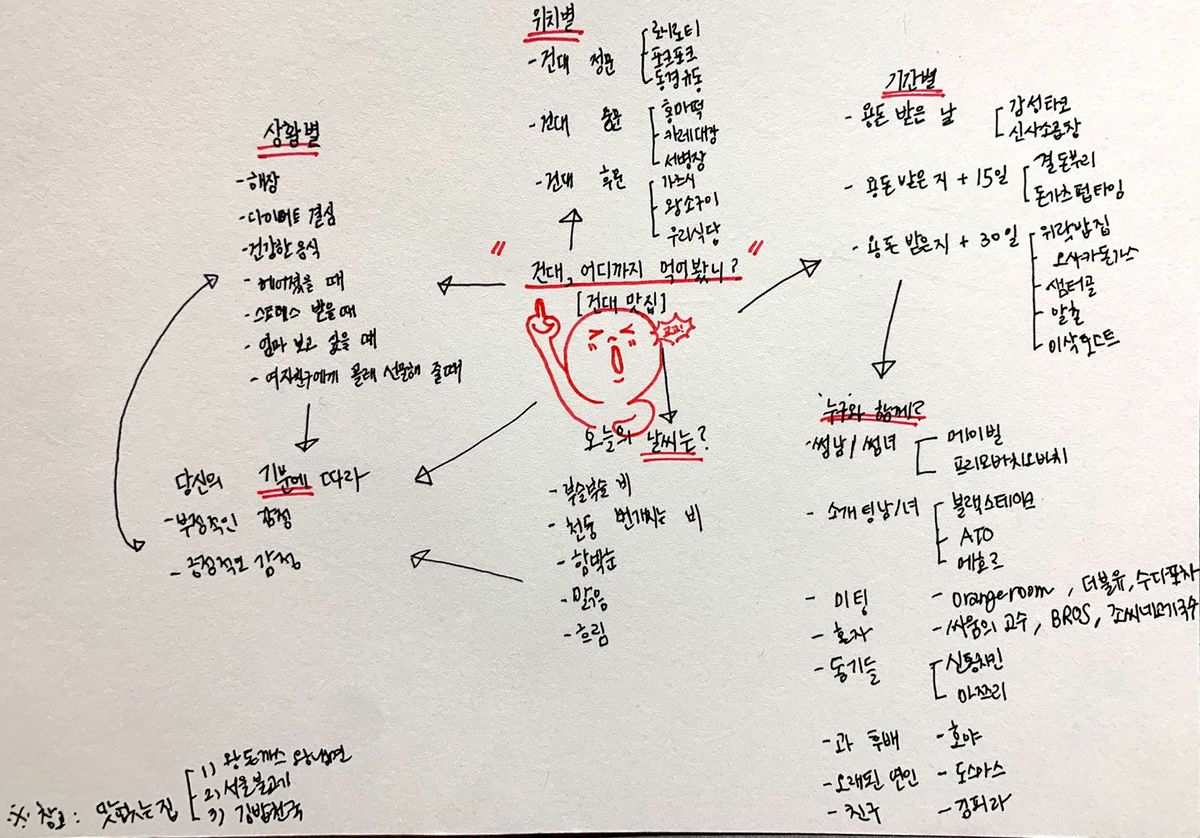 위치별
- 건대 정문
로니로티
포크포크
동경규동
- 건대 중문
홍마떡
카레대장
서병장
- 건대 후문
가츠시
왕소구이
우리식당
기간별
- 용돈 받은 날
감성타코
신사소곱창
- 용돈 받은지 + 15일
결돈부리
돈가츠펍타임
- 용돈 받은지 + 30일
위락밥집
오사카돈가스
샘터골
알촌
이삭토스트
상황별
- 해장
- 다이어트 결심
- 건강한 음식
- 헤어졌을 때
- 스트레스 받을 때
- 엄마 보고 싶을 때
- 여자친구에게 몰래 선물해 줄 때
" 건대, 어디까지 먹어봤니? "
[건대 맛집]
당신의 기분에 따라
- 부정적인 감정
- 긍정적인 감정
오늘의 날씨는?
- 부슬부슬 비
- 천둥 번개치는 비
- 함박눈
- 맑음
- 흐림
'누구와 함께?'
- 썸남/썸녀
메이빌
프리모바치오바치
- 소개팅남/녀
블랙스테이크
ATO
에호르
- 미팅 - Orangeroom, 더블유, 수다포차
- 혼자 - 싸움의 고수, BROS, 조씨네고기국수
- 동기들
신통치킨
아쯔리
- 과 후배 - 호야
- 오래된 연인 - 도스마스
- 친구 - 김피라
※ 참고 : 맛없는 집
1) 왕돈까스 왕냉면
2) 서울불고기
3) 김밥천국